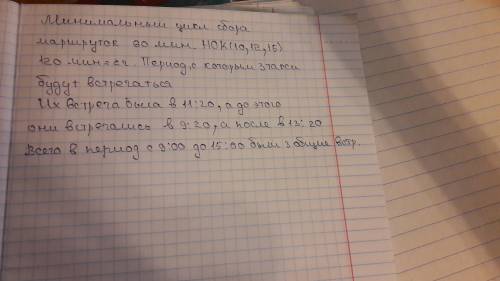 Минимальный цикл сбора
маршруток 30 мин. НСК(10,12,15)
120 мин = 2ч. Период, с которым 3 такси
будут встречаться
Их встреча была в 11:20, а до этого
они встречались в 9:20, а после в 13:20
Всего в период с 9:00 до 15:00 были 3 общие встр.